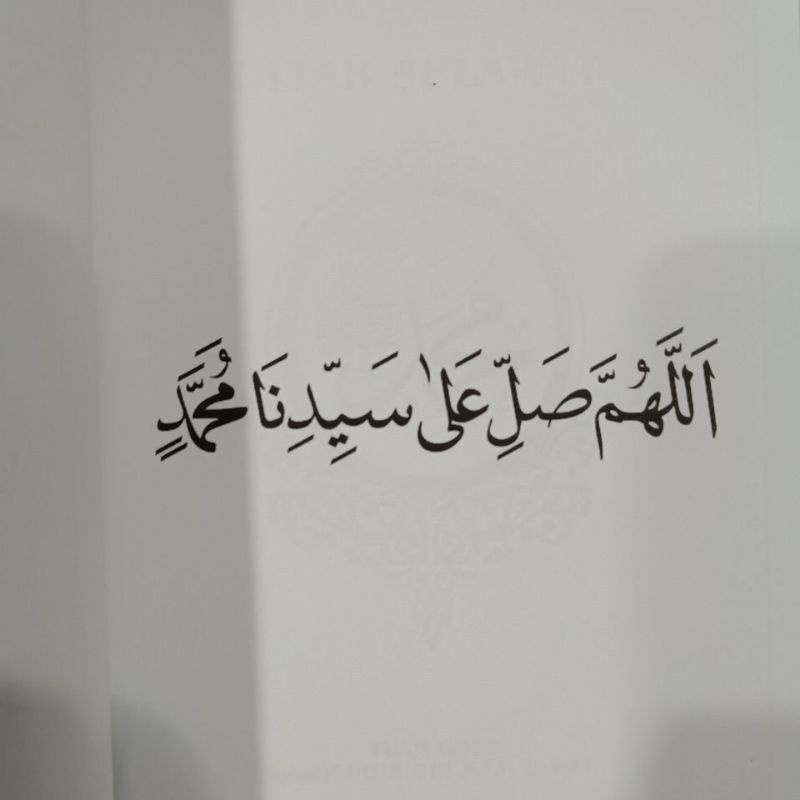 اَللَّهُمَّ صَلِّ عَلَىٰ سَيِّدِنَا مُحَمَّدٍ